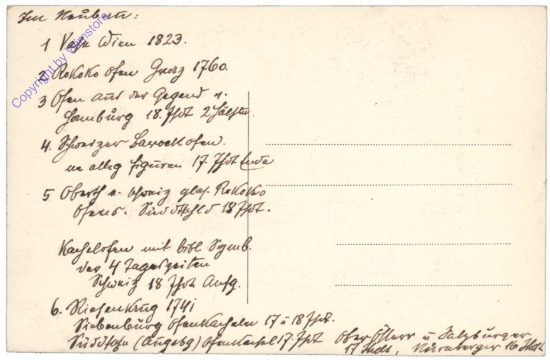 Im Neubau:
1 Vase Wien 1823.
2 Rokoko Ofen Graz 1760.
3 Ofen aus der Gegend v.
Hamburg 18. Jhdt 2 Hälfte.
4. Schweizer Barockofen
m alleg Figuren 17. Jhdt Ende
5 Oberöh u. Schweiz glas. Rokoko
Ofens. Süddtschld 18 Jhdt.
Kachelofen mit bibl Symb.
der 4 Tageszeiten
Schweiz 18 Jhdt Anfg.
6. Riesenkrug 1741
Siebenbürg Ofenkacheln 17 u 18 Jhdt.
Süddtsche (Augsbg) Ofenkachel 17. Jhdt
Ober Österr u Salzburger
17 Jhdt. Nürnberger 16 Jhdt.
Copyright by Brimstore